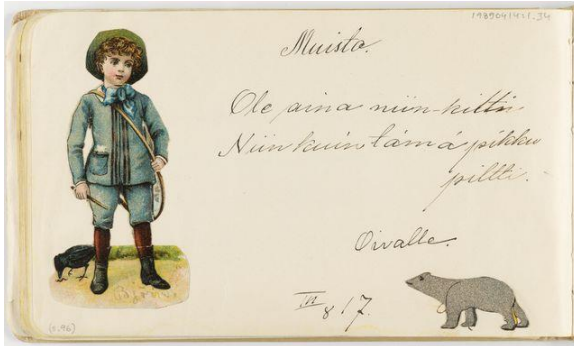 1989041411.34
Muisto.
Ole aina niin kiltti
Niinkuin tämä pikku
piltti.
Oivalle.
IV 8/7.
(s.96)